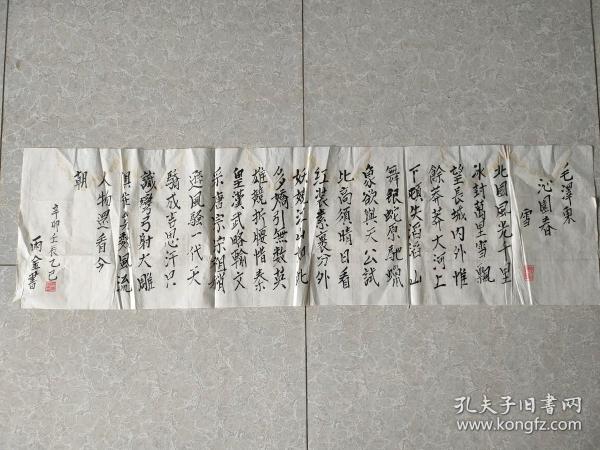 毛澤東
沁園春
雪
北國風光千里
冰封萬里雪飄
望長城内外惟
餘莽莽大河上
下頓失滔滔山
舞銀蛇原馳蠟
象欲與天公試
比高須晴日看
紅裝素裹分外
妖嬈江山如此
多嬌引無數英
雄競折腰惜秦
皇漢武略輸文
采唐宗宋祖稍
遜風騷一代天
驕成吉思汗只
識彎弓射大雕
俱往矣數風流
人物還看今
朝
辛卯壬辰乙巳
丙金書
孔夫子旧书网
www.kongfz.com